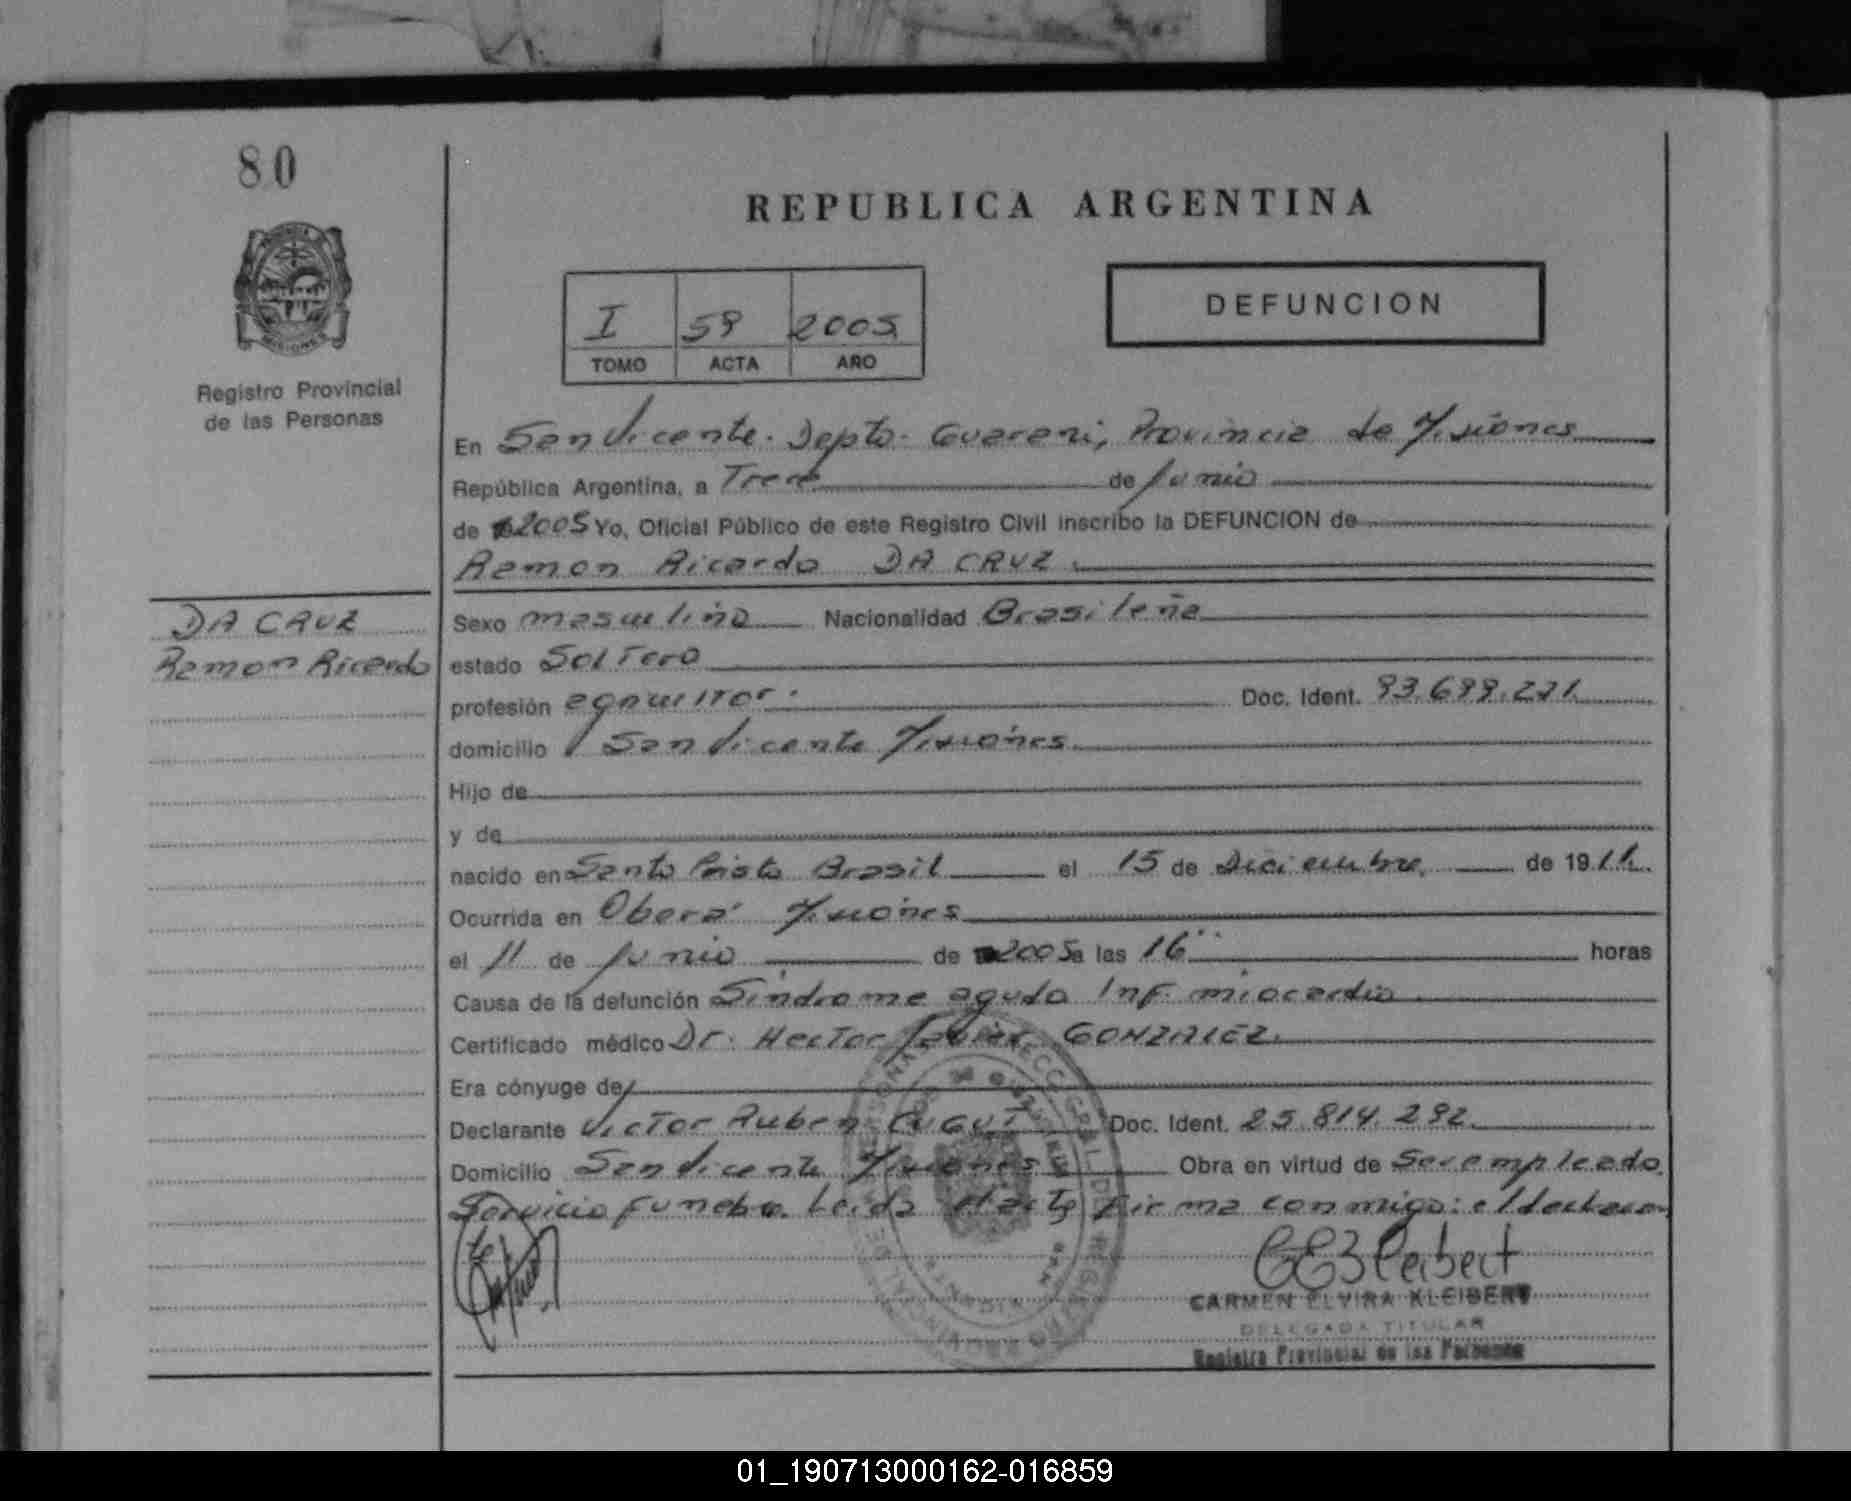 80
REPUBLICA ARGENTINA
I 59 2005
TOMO ACTA AÑO
DEFUNCION
MISIONES
Registro Provincial
de las Personas
En San Vicente. Depto. Guarani, Provincia de Misiones
República Argentina, a Trece de Junio
de 2005 Yo, Oficial Público de este Registro Civil inscribo la DEFUNCION de
Ramon Ricardo DA CRUZ.
DA CRUZ
Ramon Ricardo
Sexo masculino Nacionalidad Brasileña
estado Soltero
profesión agricultor. Doc. Ident. 93.699.271
domicilio San Vicente Misiones
Hijo de
y de
nacido en Santo Cristo Brasil el 15 de Diciembre de 1911.
Ocurrida en Oberá Misiones
el 11 de Junio de 2005 a las 16 horas
Causa de la defunción Sindrome agudo Inf. miocardio
Certificado médico Dr. Hector Javier GONZALEZ.
Era cónyuge de
Declarante Victor Ruben Doc. Ident. 25.814.292.
Domicilio San Vicente Misiones Obra en virtud de Ser empleado
Servicio funebre. Leida el acta firma conmigo: el declaran
te
CARMEN ELVIRA KLEIBERT
DELEGADA TITULAR
Registro Provincial de las Personas
01_190713000162-016859